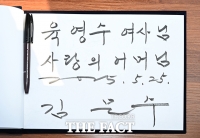 육영수 여사님
사랑의 어머님
5. 5. 25.
김문수
THE FACT